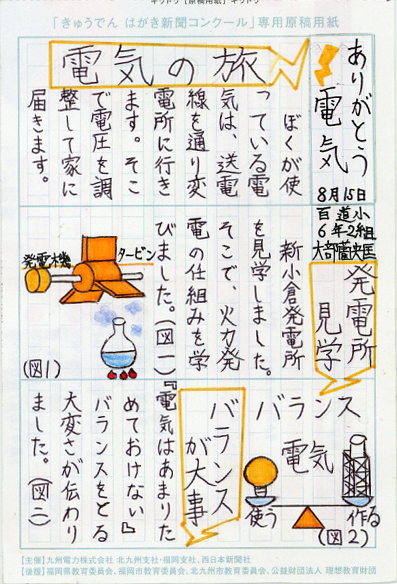 「きゅうでん はがき新聞コンクール」専用原稿用紙
ありがとう
電気
8月15日
百道小
6年2組
電気の旅
ぼくが使
っている電
気は、送電
線を通り変
電所に行き
ます。そこ
で電圧を調
整して家に
届きます。
発電所
見学
新小倉発電所
を見学しました。
そこで、火力発
電の仕組みを学
びました。(図一)
発電機
タービン
(図1)
バランス
が大事
『電気はあまりた
めておけない』
バランスをとる
大変さが伝わり
ました。(図二)
バランス
電気
使う
作る
(図2)
【主催】九州電力株式会社 北九州支社・福岡支社、西日本新聞社
【後援】福岡県教育委員会、福岡市教育委員会、北九州市教育委員会、公益財団法人 理想教育財団